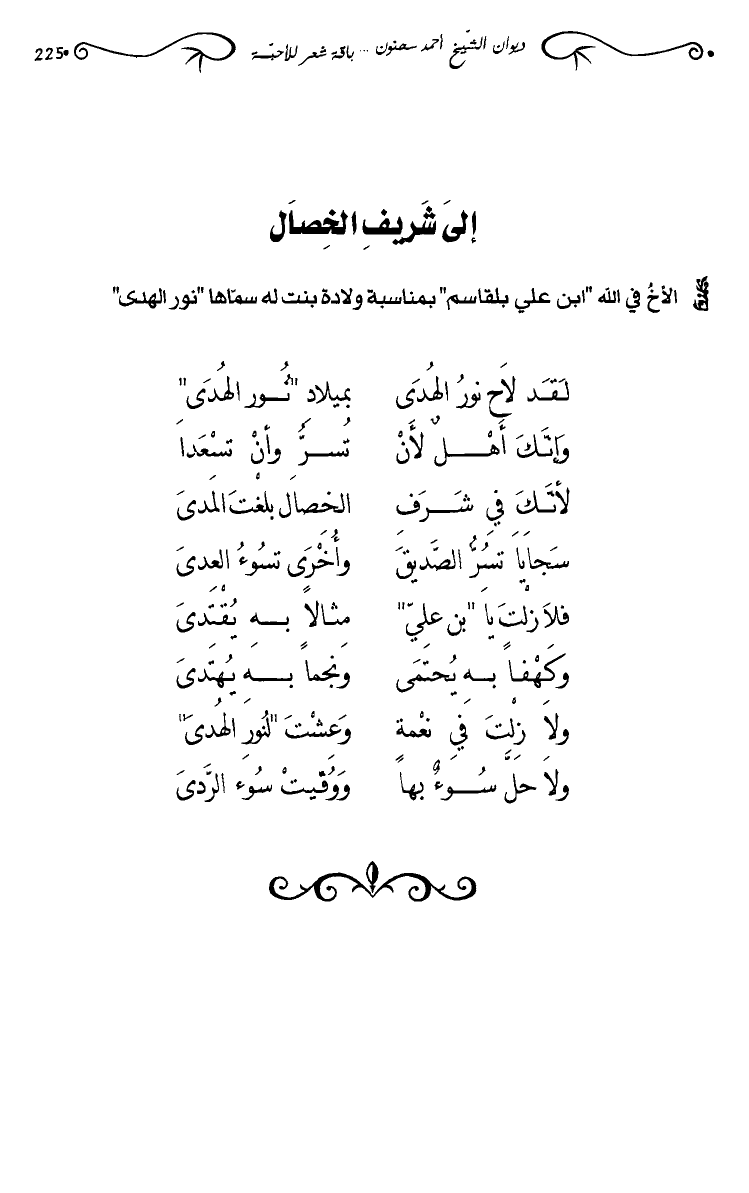 ديوان الشّيخ أحمد سحنون ... باقة شعر للأحبّة 225
إلىَ شَريفِ الخِصاَل
الأخُ في الله "ابن علي بلقاسم" بمناسبة ولادة بنت له سمّاها "نور الهدى"
لَـقَـد لاَح نورُ الهُدَى بميلادِ "نُـــور الهُدَى"
وَإنَّـكَ أَهْــــلٌ لأَنْ تُســـرَّ وأنْ تسْعَداَ
لأنَّـكَ في شَـــرَفِ الخصال بلغْتَ المدىَ
سَجاياَ تسُرُّ الصَّديقَ وأُخْرَى تسُوءُ العدىَ
فلاَ زلْتَ ياَ "بن عليّ" مثـالاً بـــهِ يُقْتَدىَ
وكَهْفـاً بــهِ يُحتمَى ونَجماً بـــهِ يُهتَدىَ
ولاَ زِلْتَ في نعْمةٍ وَعشْتَ "لُنورِ الهُدىَ"
ولاَ حلَّ سُـــوءٌ بهاَ وَوُقّيتْ سُوءَ الرَّدىَ